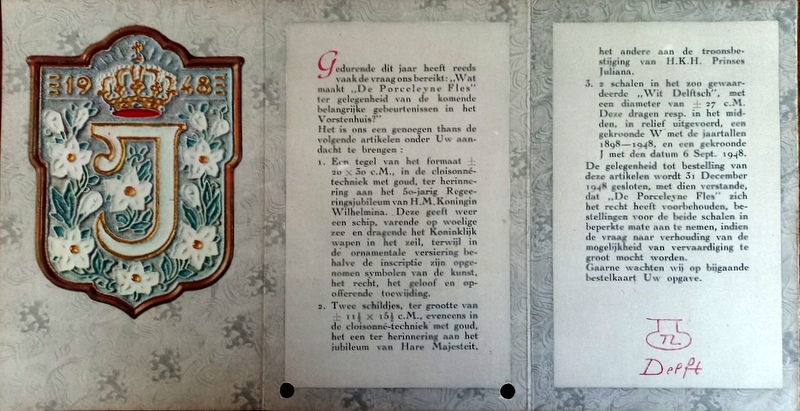 1948
J
Gedurende dit jaar heeft reeds
vaak de vraag ons bereikt: „Wat
maakt „De Porceleyne Fles"
ter gelegenheid van de komende
belangrijke gebeurtenissen in het
Vorstenhuis?"
Het is ons een genoegen thans de
volgende artikelen onder Uw aan-
dacht te brengen :
1. Een tegel van het formaat ±
20 × 30 c.M., in de cloisonné-
techniek met goud, ter herinne-
ring aan het 50-jarig Regee-
ringsjubileum van H.M. Koningin
Wilhelmina. Deze geeft weer
een schip, varende op woelige
zee en dragende het Koninklijk
wapen in het zeil, terwijl in
de ornamentale versiering be-
halve de inscriptie zijn opge-
nomen symbolen van de kunst,
het recht, het geloof en op-
offerende toewijding.
2. Twee schildjes, ter grootte van
± 11½ × 15½ c.M., eveneens in
de cloisonné-techniek met goud,
het een ter herinnering aan het
jubileum van Hare Majesteit,
het andere aan de troonsbe-
stijging van H.K.H. Prinses
Juliana.
3. 2 schalen in het zoo gewaar-
deerde „Wit Delftsch", met
een diameter van ± 27 c.M.
Deze dragen resp. in het mid-
den, in relief uitgevoerd, een
gekroonde W met de jaartallen
1898—1948, en een gekroonde
J met den datum 6 Sept. 1948.
De gelegenheid tot bestelling van
deze artikelen wordt 31 December
1948 gesloten, met dien verstande,
dat „De Porceleyne Fles" zich
het recht heeft voorbehouden, be-
stellingen voor de beide schalen in
beperkte mate aan te nemen, indien
de vraag naar verhouding van de
mogelijkheid van vervaardiging te
groot mocht worden.
Gaarne wachten wij op bijgaande
bestelkaart Uw opgave.
Delft